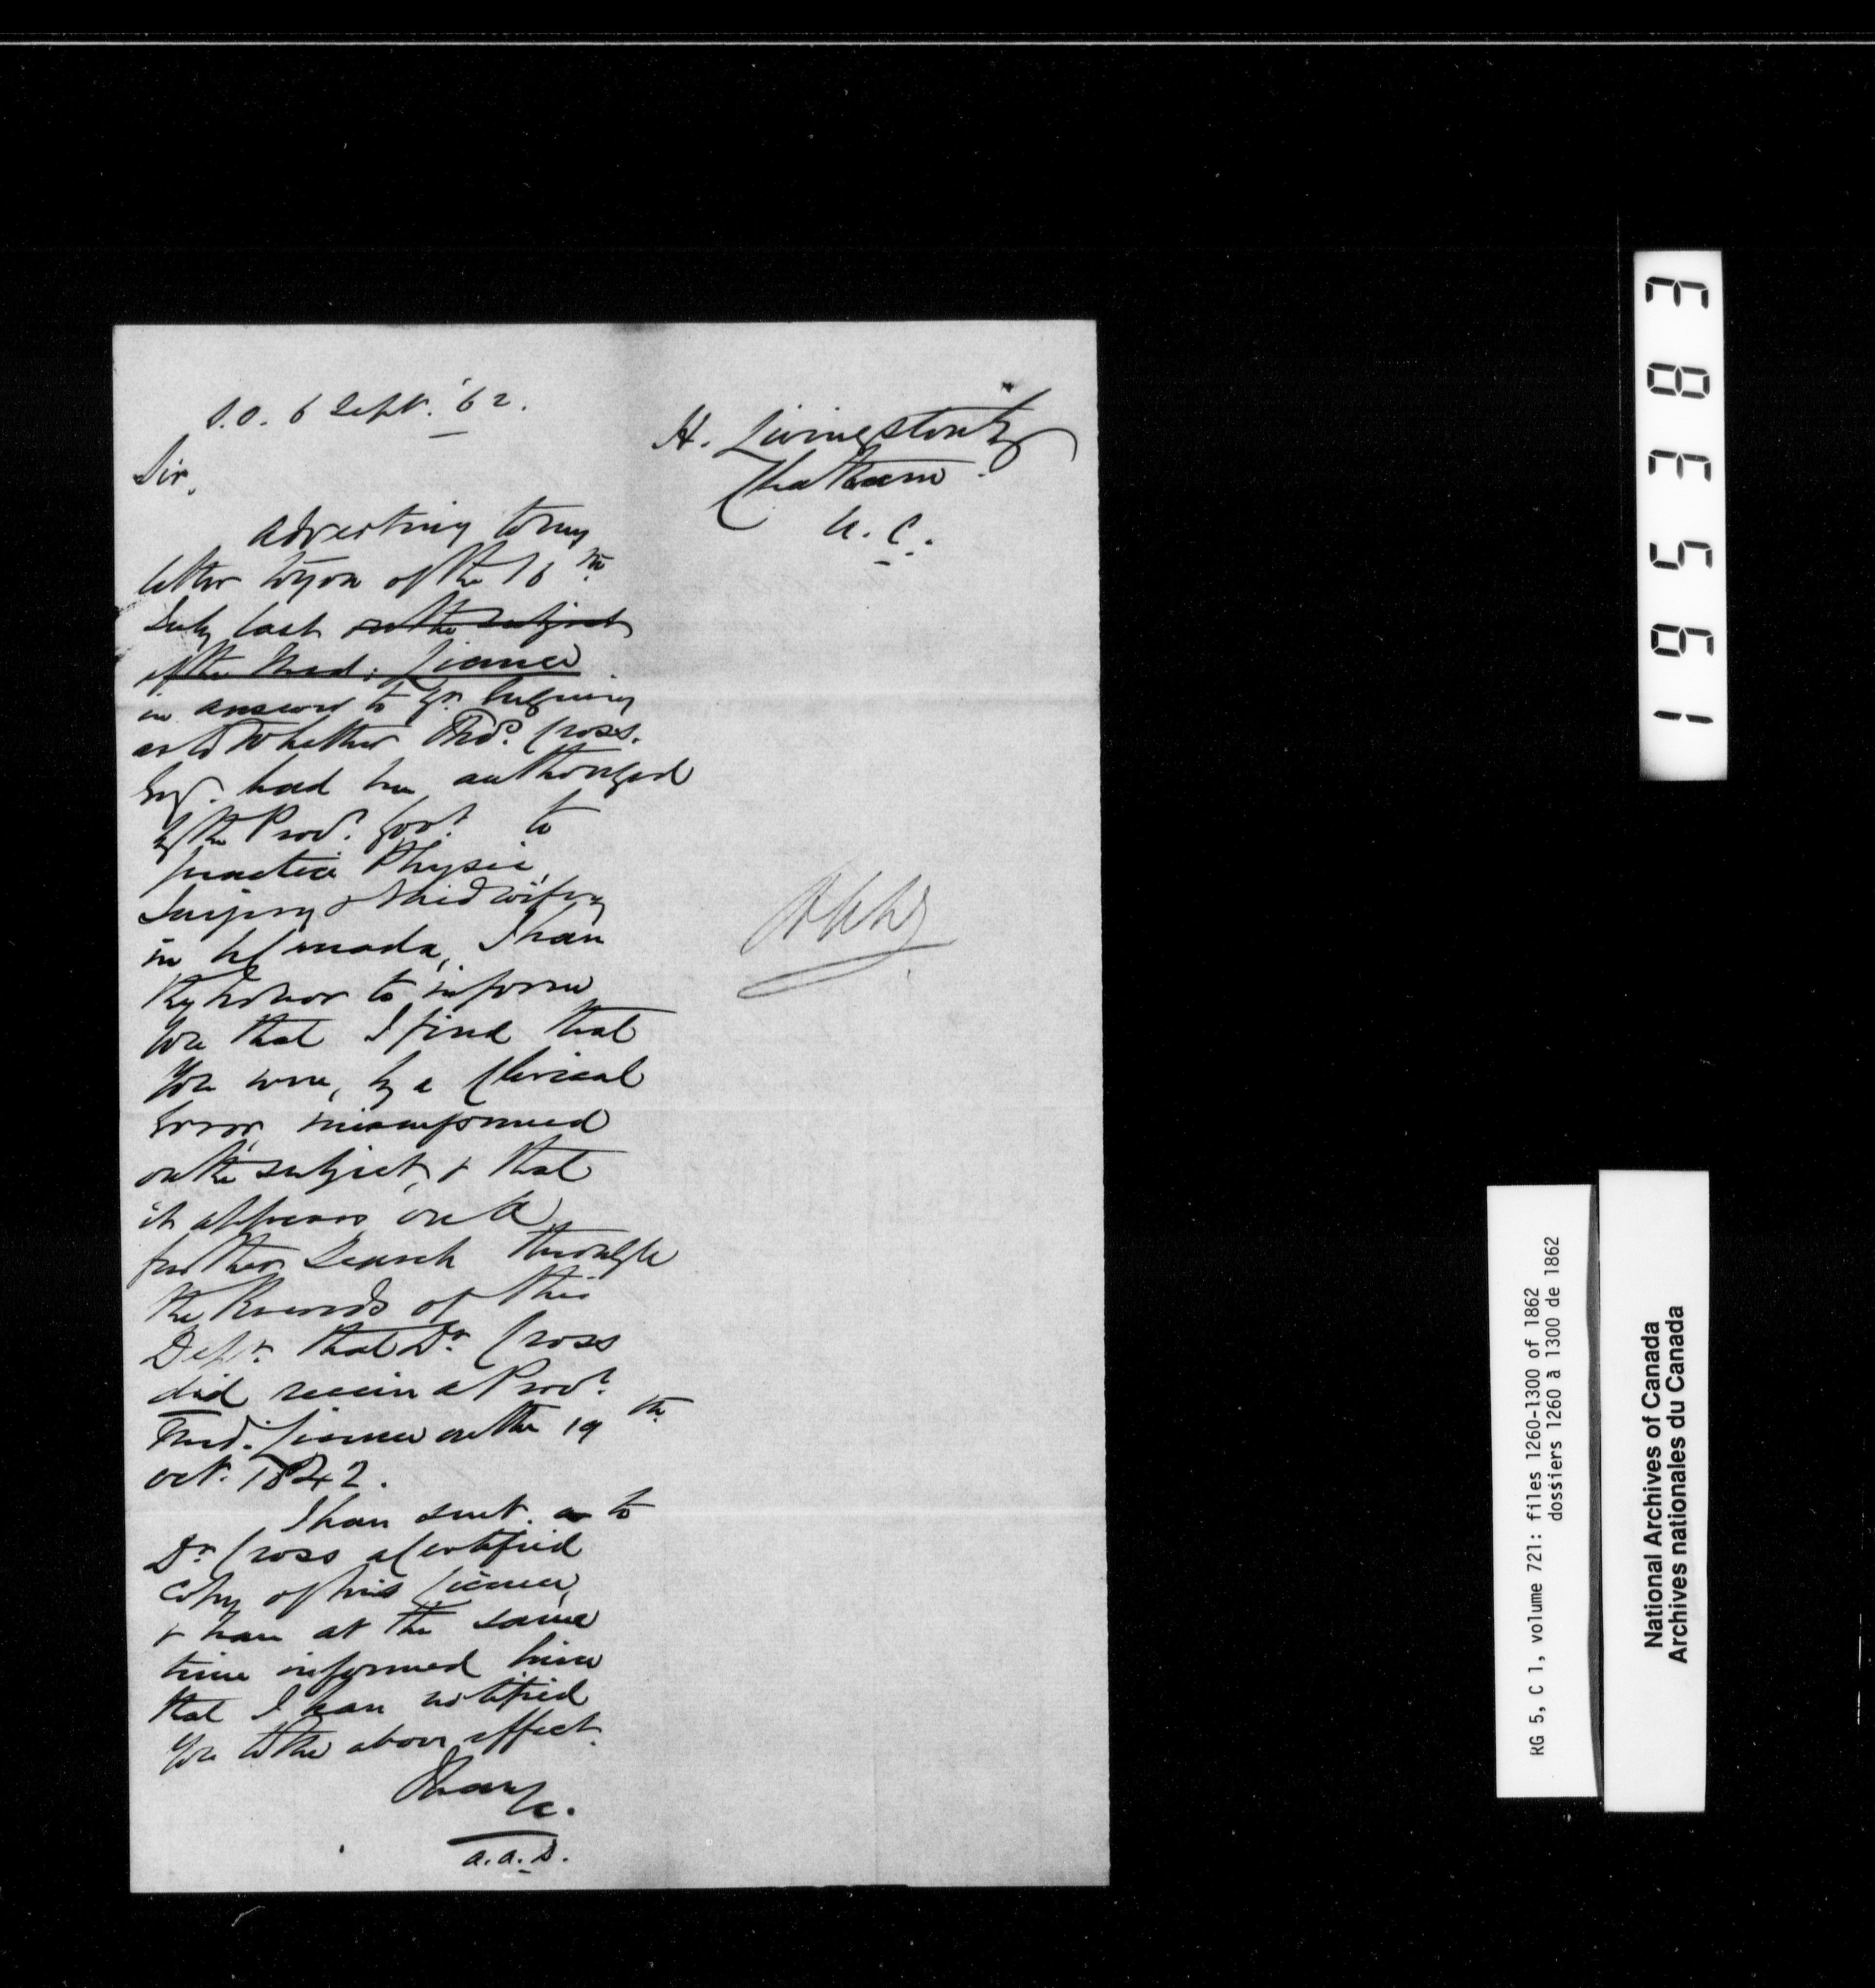 S.O. 6 Sept. '62.
H. Livingston Esq
Chatham.
U. C.
Sir,
Adverting to my
letter to you of the 16th
July last on the subject
of the Med: Licence
in answer to yr. Enquiry
as to whether Thos. Cross.
Esq. had been authorized
by the Provl. Govt. to
practice Physic,
Surgery & Midwifery
in U Canada, I have
the honor to inform
you that I find that
you were, by a Clerical
Error, misinformed
on the subject, & that
it appears on a
further Search through
the Records of this
Dept. that Dr. Cross
did receive a Provl.
Med. Licence on the 19th
Oct. 1842.
I have sent to
Dr. Cross a Certified
Copy of his Licence,
& have at the same
time informed him
that I have notified
you to the above effect.
I have
&c.
A.A.S.
195383
RG 5, C 1, volume 721: files 1260-1300 of 1862
dossiers 1260 à 1300 de 1862
National Archives of Canada
Archives nationales du Canada